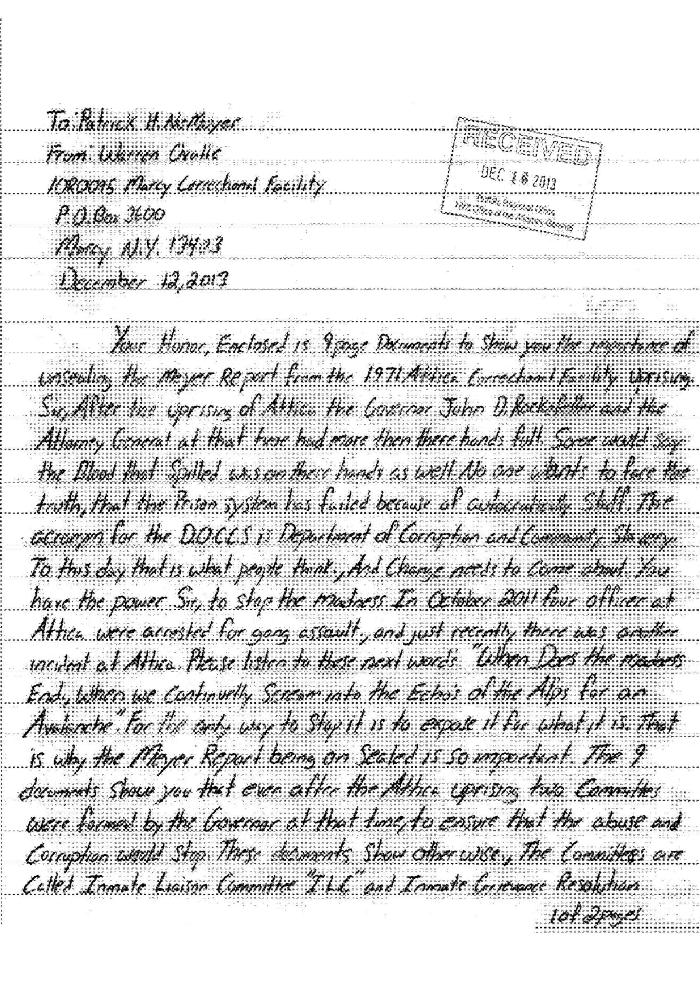 To: Patrick H. NeMoyer
From: Warren Ovalle
10R0095 Marcy Correctional Facility
P.O. Box 3600
Marcy N.Y. 13403
December 12, 2013
RECEIVED
DEC 16 2013
Your Honor, Enclosed is 9 page Documents to Show you the importance of
unsealing the Meyer Report from the 1971 Attica Correctional Facility Uprising.
Sir, After the uprising of Attica the Governor John D. Rockefeller and the
Attorney General at that time had more then there hands full. Some would say
the Blood that Spilled was on there hands as well. No one wants to face the
truth, that the Prison system has failed because of autocratically Staff. The
acronym for the D.O.C.C.S is Department of Corruption and Community Slavery.
To this day that is what people think., And Change needs to come about. You
have the power Sir, to stop the madness. In October 2011 four officer at
Attica were arrested for gang assault., and just recently there was another
incident at Attica. Please listen to these next words "When Does the madness
End., When we Continually Scream into the Echo's of the Alps for an
Avalanche". For the only way to stop it is to expose it for what it is. That
is why the Meyer Report being on Sealed is so important. The 9
documents Show you that even after the Attica uprising two Committes
were formed by the Governor at that time, to ensure that the abuse and
Corruption would Stop. These documents Show otherwise., The Committees are
Called Inmate Liaison Committee "ILC" and Inmate Grievance Resolution
1 of 2 pages